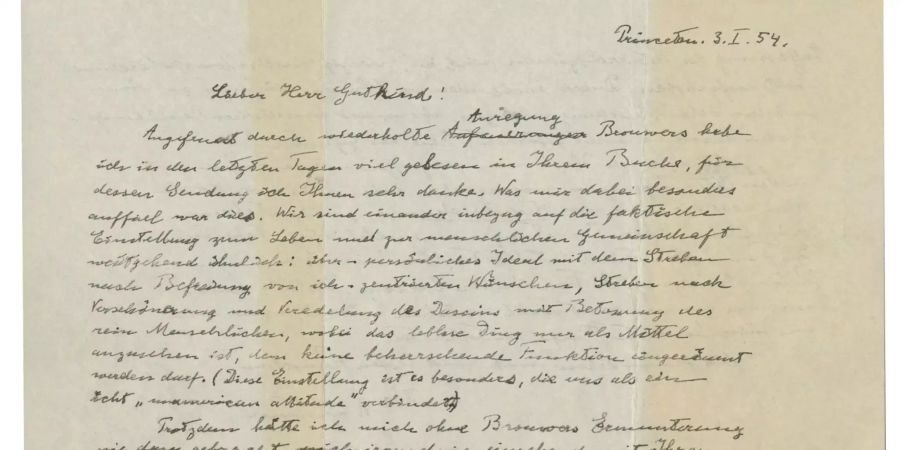 Princeton. 3. I. 54.
Lieber Herr Gutkind!
Anregung
Angefeuert durch wiederholte Aufmunterungen Brouwers habe
ich in den letzten Tagen viel gelesen in Ihrem Buche, für
dessen Sendung ich Ihnen sehr danke. Was mir dabei besonders
auffiel war dies. Wir sind einander inbezug auf die faktische
Einstellung zum Leben und zur menschlichen Gemeinschaft
weitgehend ähnlich: über-persönliches Ideal mit dem Streben
nach Befreiung von ich-zentrierten Wünschen, Streben nach
Verschönerung und Veredelung des Daseins mit Betonung des
rein Menschlichen, wobei das leblose Ding nur als Mittel
anzusehen ist, dem keine beherrschende Funktion eingeräumt
werden darf. (Diese Einstellung ist es besonders, die uns als ein
echt „unamerican attitude" verbindet)
Trotzdem hätte ich mich ohne Brouwers Ermunterung
nie dazu gebracht, mich irgendwie eingehend mit Ihrem